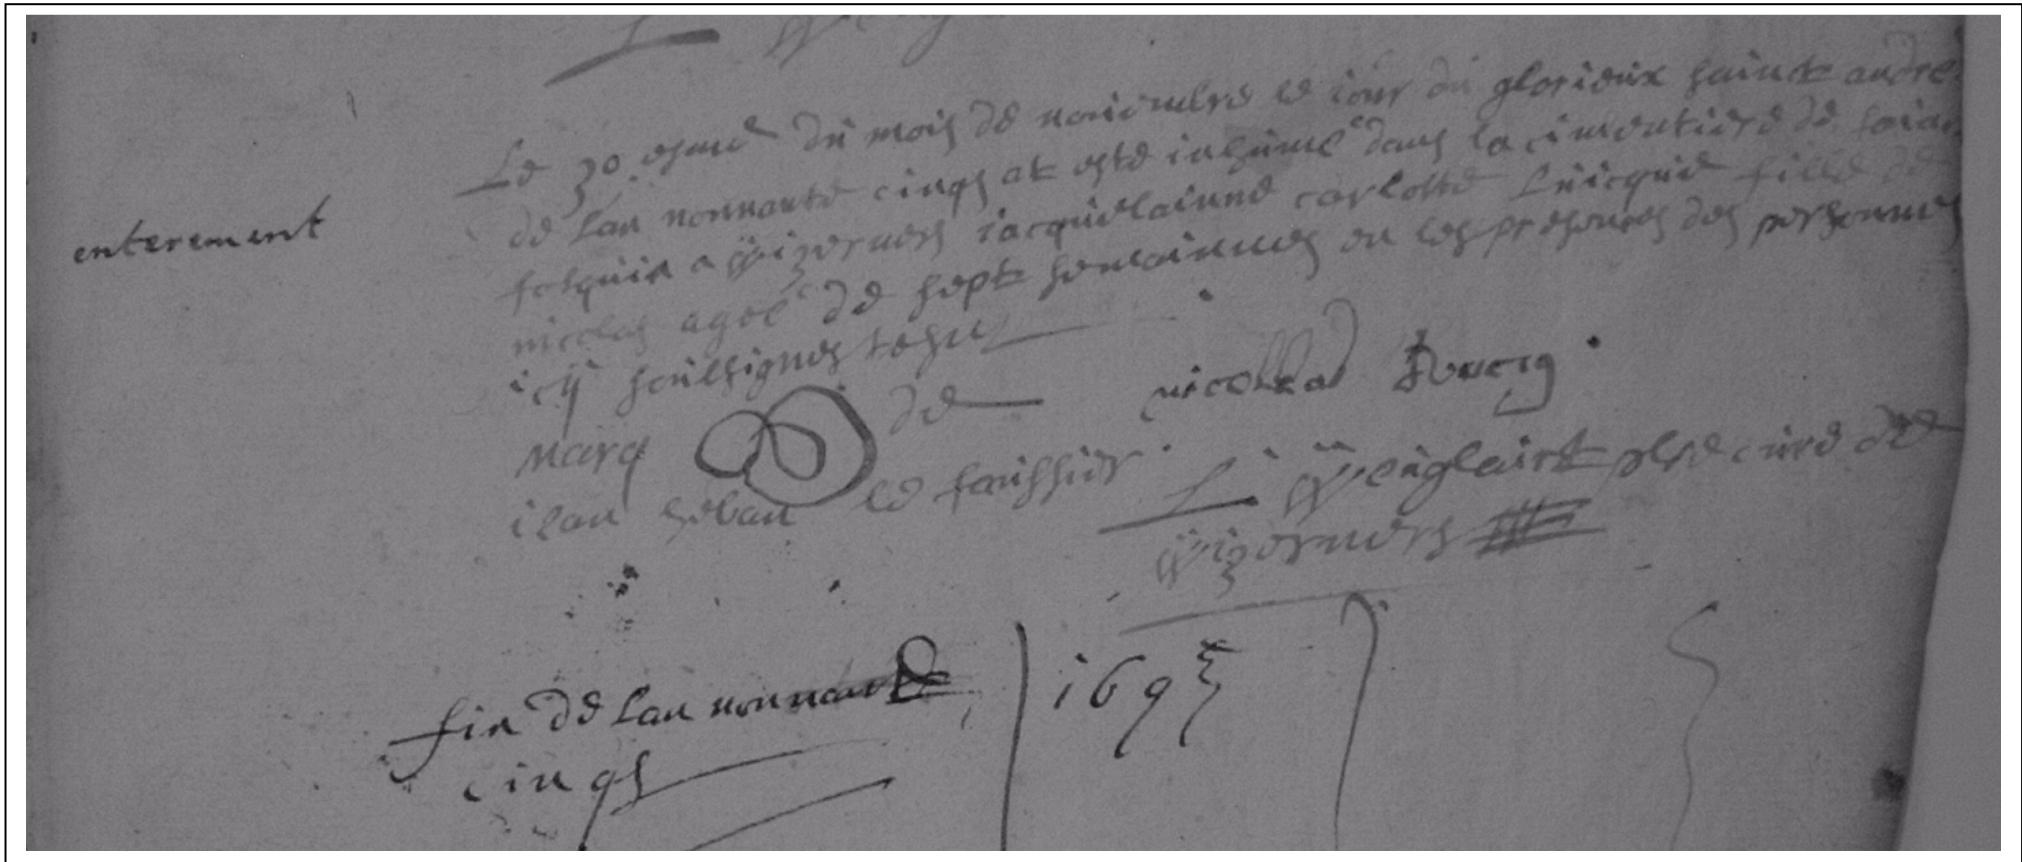 enterement
Le 30 esme du mois de novembre le iour du glorieux sainct andre
de lan nonnante cinqs at esté inhumé dans la cimentiere de sain
folquin a Wizernes iacquelainne carlotte fille de
nicolas agée de sept semainnes en les presences des personnes
icy soulsignes
marq de nicollas
iean le faussier
L W englairt pbre cure de
Wizernes
fin de lan nonnante 1695
cinqs